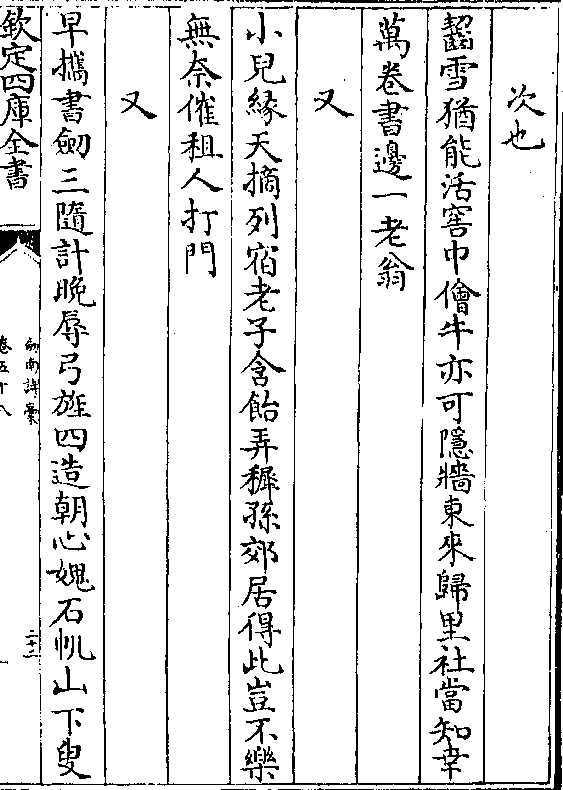 次也
齧雪猶能活窖中儈牛亦可隱牆東來歸里社當知幸
萬卷書邊一老翁
又
小兒緣天摘列宿老子含飴弄穉孫郊居得此豈不樂
無奈催租人打門
又
早攜書劒三隨計晚辱弓旌四造朝心媿石帆山下叟
欽定四庫全書
劒南詩稾
卷五十八
二十二